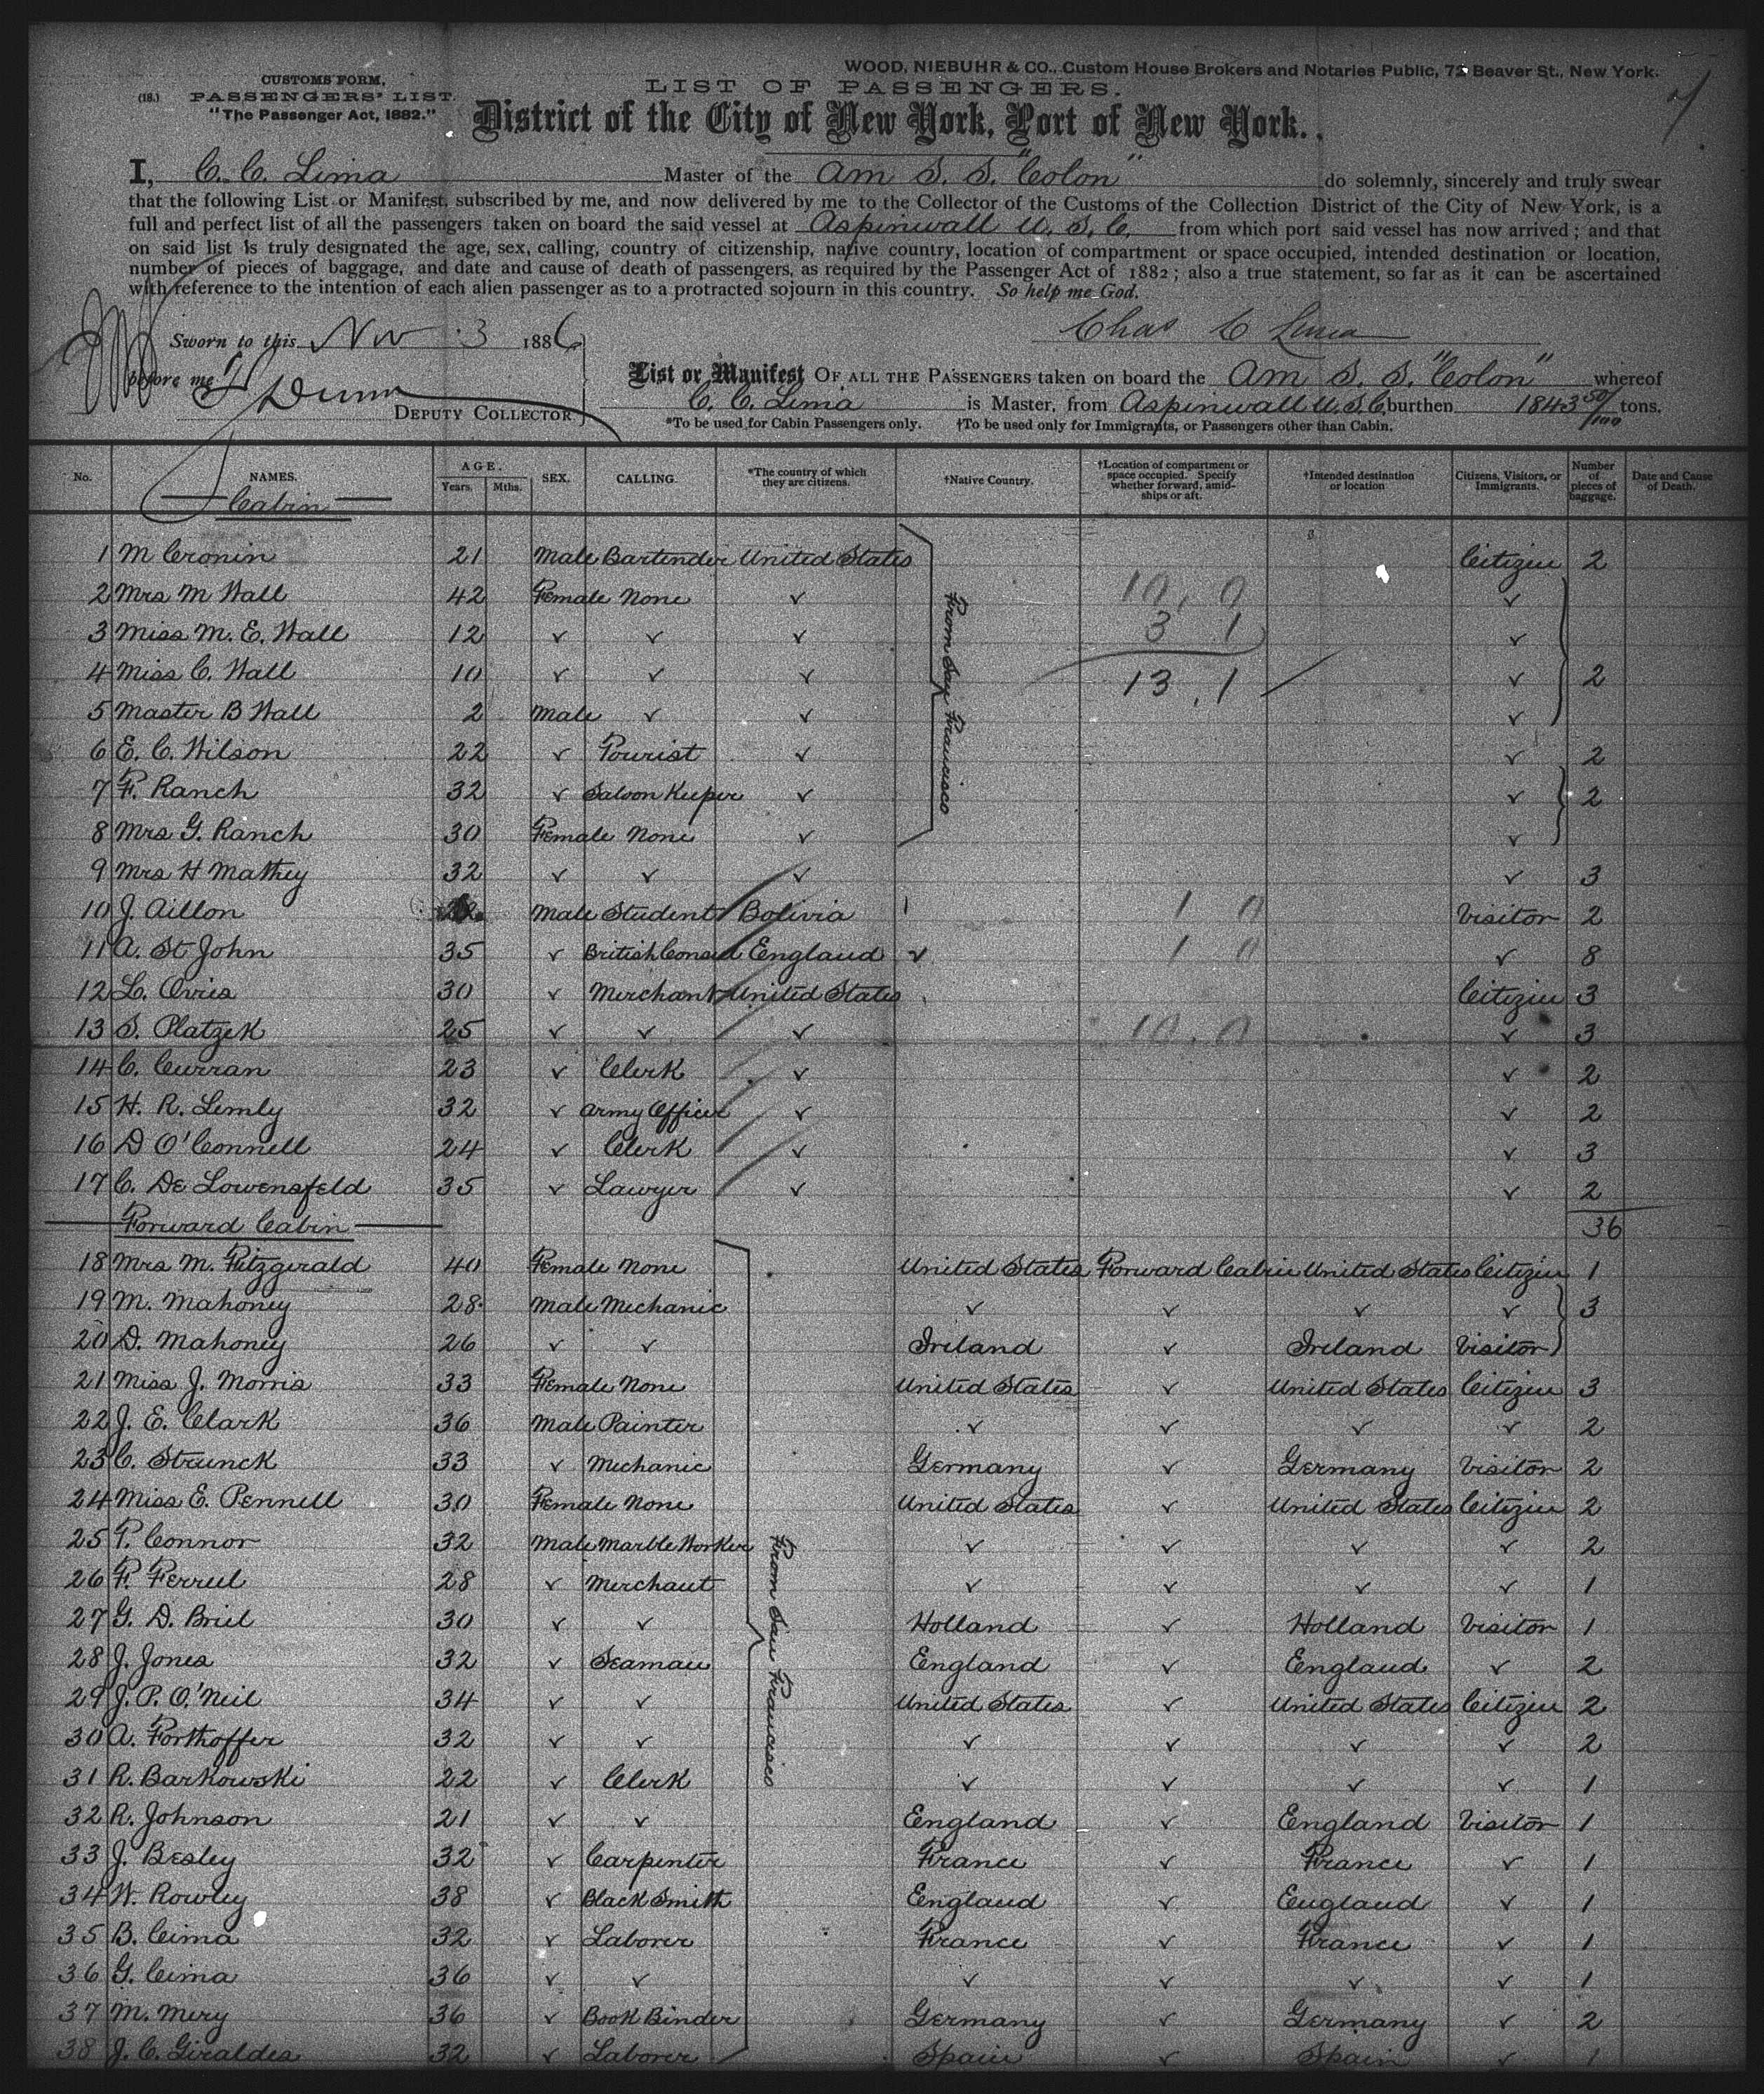 WOOD, NIEBUHR & CO., Custom House Brokers and Notaries Public, 72 Beaver St., New York.
CUSTOMS FORM,
(18.) PASSENGERS' LIST.
"The Passenger Act, 1882."
LIST OF PASSENGERS.
District of the City of New York, Port of New York.
I, C. C. Lima Master of the Am S. S. "Colon" do solemnly, sincerely and truly swear
that the following List or Manifest, subscribed by me, and now delivered by me to the Collector of the Customs of the Collection District of the City of New York, is a
full and perfect list of all the passengers taken on board the said vessel at Aspinwall U. S. C. from which port said vessel has now arrived; and that
on said list is truly designated the age, sex, calling, country of citizenship, native country, location of compartment or space occupied, intended destination or location,
number of pieces of baggage, and date and cause of death of passengers, as required by the Passenger Act of 1882; also a true statement, so far as it can be ascertained
with reference to the intention of each alien passenger as to a protracted sojourn in this country. So help me God.
Chas C Lima
Sworn to this Nov 3 1886
before me Dunn
DEPUTY COLLECTOR
List or Manifest OF ALL THE PASSENGERS taken on board the Am S. S. "Colon" whereof
C. C. Lima is Master, from Aspinwall U.S.C. burthen 1843 50/100 tons.
*To be used for Cabin Passengers only. †To be used only for Immigrants, or Passengers other than Cabin.
No. NAMES. AGE. Years. Mths. SEX. CALLING. *The country of which they are citizens. †Native Country. †Location of compartment or space occupied. Specify whether forward, amidships or aft. †Intended destination or location Citizens, Visitors, or Immigrants. Number of pieces of baggage. Date and Cause of Death.
Cabin
1 M Cronin 21 Male Bartender United States Citizen 2
2 Mrs M Wall 42 Female None ✓ 10, 0 ✓
3 Miss M. E. Wall 12 ✓ ✓ ✓ 3 1 ✓
4 Miss C. Wall 10 ✓ ✓ ✓ 13, 1 ✓ 2
5 Master B Wall 2 Male ✓ ✓ ✓
6 E. C. Wilson 22 ✓ Tourist ✓ ✓ 2
7 F. Ranch 32 ✓ Saloon Keeper ✓ ✓ 2
8 Mrs G. Ranch 30 Female None ✓ ✓
From San Francisco
9 Mrs H Mathey 32 ✓ ✓ ✓ ✓ 3
10 J. Aillon Male Student Bolivia 1 0 Visitor 2
11 A. St John 35 ✓ British Consul England ✓ 1 0 ✓ 8
12 L. Orris 30 ✓ Merchant United States Citizen 3
13 S. Platzek 25 ✓ ✓ ✓ 10, 0 ✓ 3
14 C. Curran 23 ✓ Clerk ✓ ✓ 2
15 H. R. Lemly 32 ✓ Army Officer ✓ ✓ 2
16 D O'Connell 24 ✓ Clerk ✓ ✓ 3
17 C. De Lowensfeld 35 ✓ Lawyer ✓ ✓ 2
Forward Cabin 36
18 Mrs M. Fitzgerald 40 Female None United States Forward Cabin United States Citizen 1
19 M. Mahoney 28 Male Mechanic ✓ ✓ ✓ ✓ 3
20 D. Mahoney 26 ✓ ✓ Ireland ✓ Ireland Visitor
21 Miss J. Morris 33 Female None United States ✓ United States Citizen 3
22 J. E. Clark 36 Male Painter ✓ ✓ ✓ ✓ 2
23 C. Strunck 33 ✓ Mechanic Germany ✓ Germany Visitor 2
24 Miss E. Pennell 30 Female None United States ✓ United States Citizen 2
25 P. Connor 32 Male Marble Worker ✓ ✓ ✓ ✓ 2
26 F. Ferrul 28 ✓ Merchant ✓ ✓ ✓ ✓ 1
27 G. D. Briel 30 ✓ ✓ Holland ✓ Holland Visitor 1
28 J. Jones 32 ✓ Seaman England ✓ England ✓ 2
29 J. P. O'Neil 34 ✓ ✓ United States ✓ United States Citizen 2
30 A. Forthoffer 32 ✓ ✓ ✓ ✓ ✓ ✓ 2
31 R. Barkowski 22 ✓ Clerk ✓ ✓ ✓ ✓ 1
32 R. Johnson 21 ✓ ✓ England ✓ England Visitor 1
33 J. Besley 32 ✓ Carpenter France ✓ France ✓ 1
34 W. Rowley 38 ✓ Black Smith England ✓ England ✓ 1
35 B. Cima 32 ✓ Laborer France ✓ France ✓ 1
36 G. Cima 36 ✓ ✓ ✓ ✓ ✓ ✓ 1
37 M. Mery 36 ✓ Book Binder Germany ✓ Germany ✓ 2
38 J. C. Giraldes 32 ✓ Laborer Spain ✓ Spain ✓ 1
From San Francisco